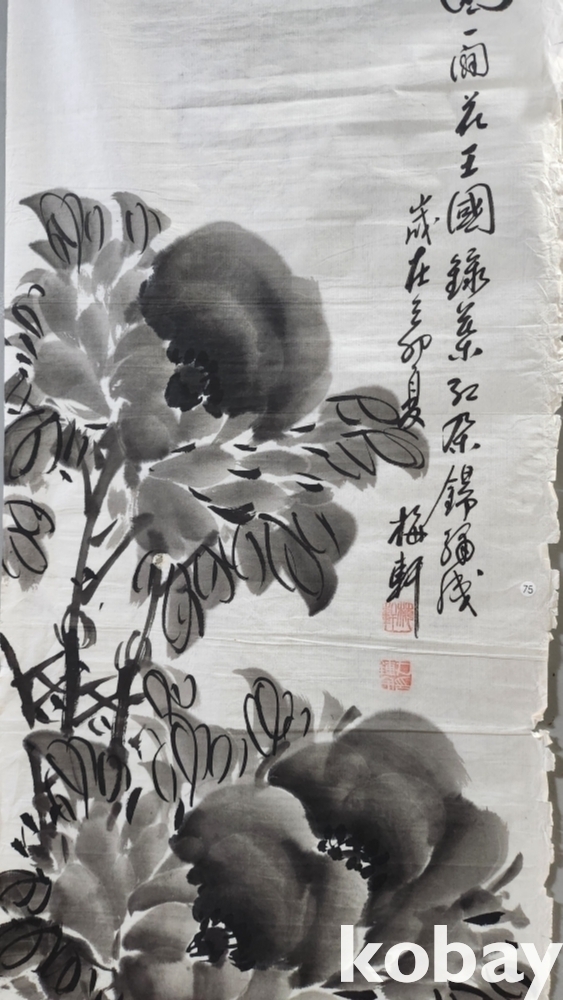 一闹花王國緑葉红朶錦繡成
歲在乙卯夏
梅軒
75
kobay